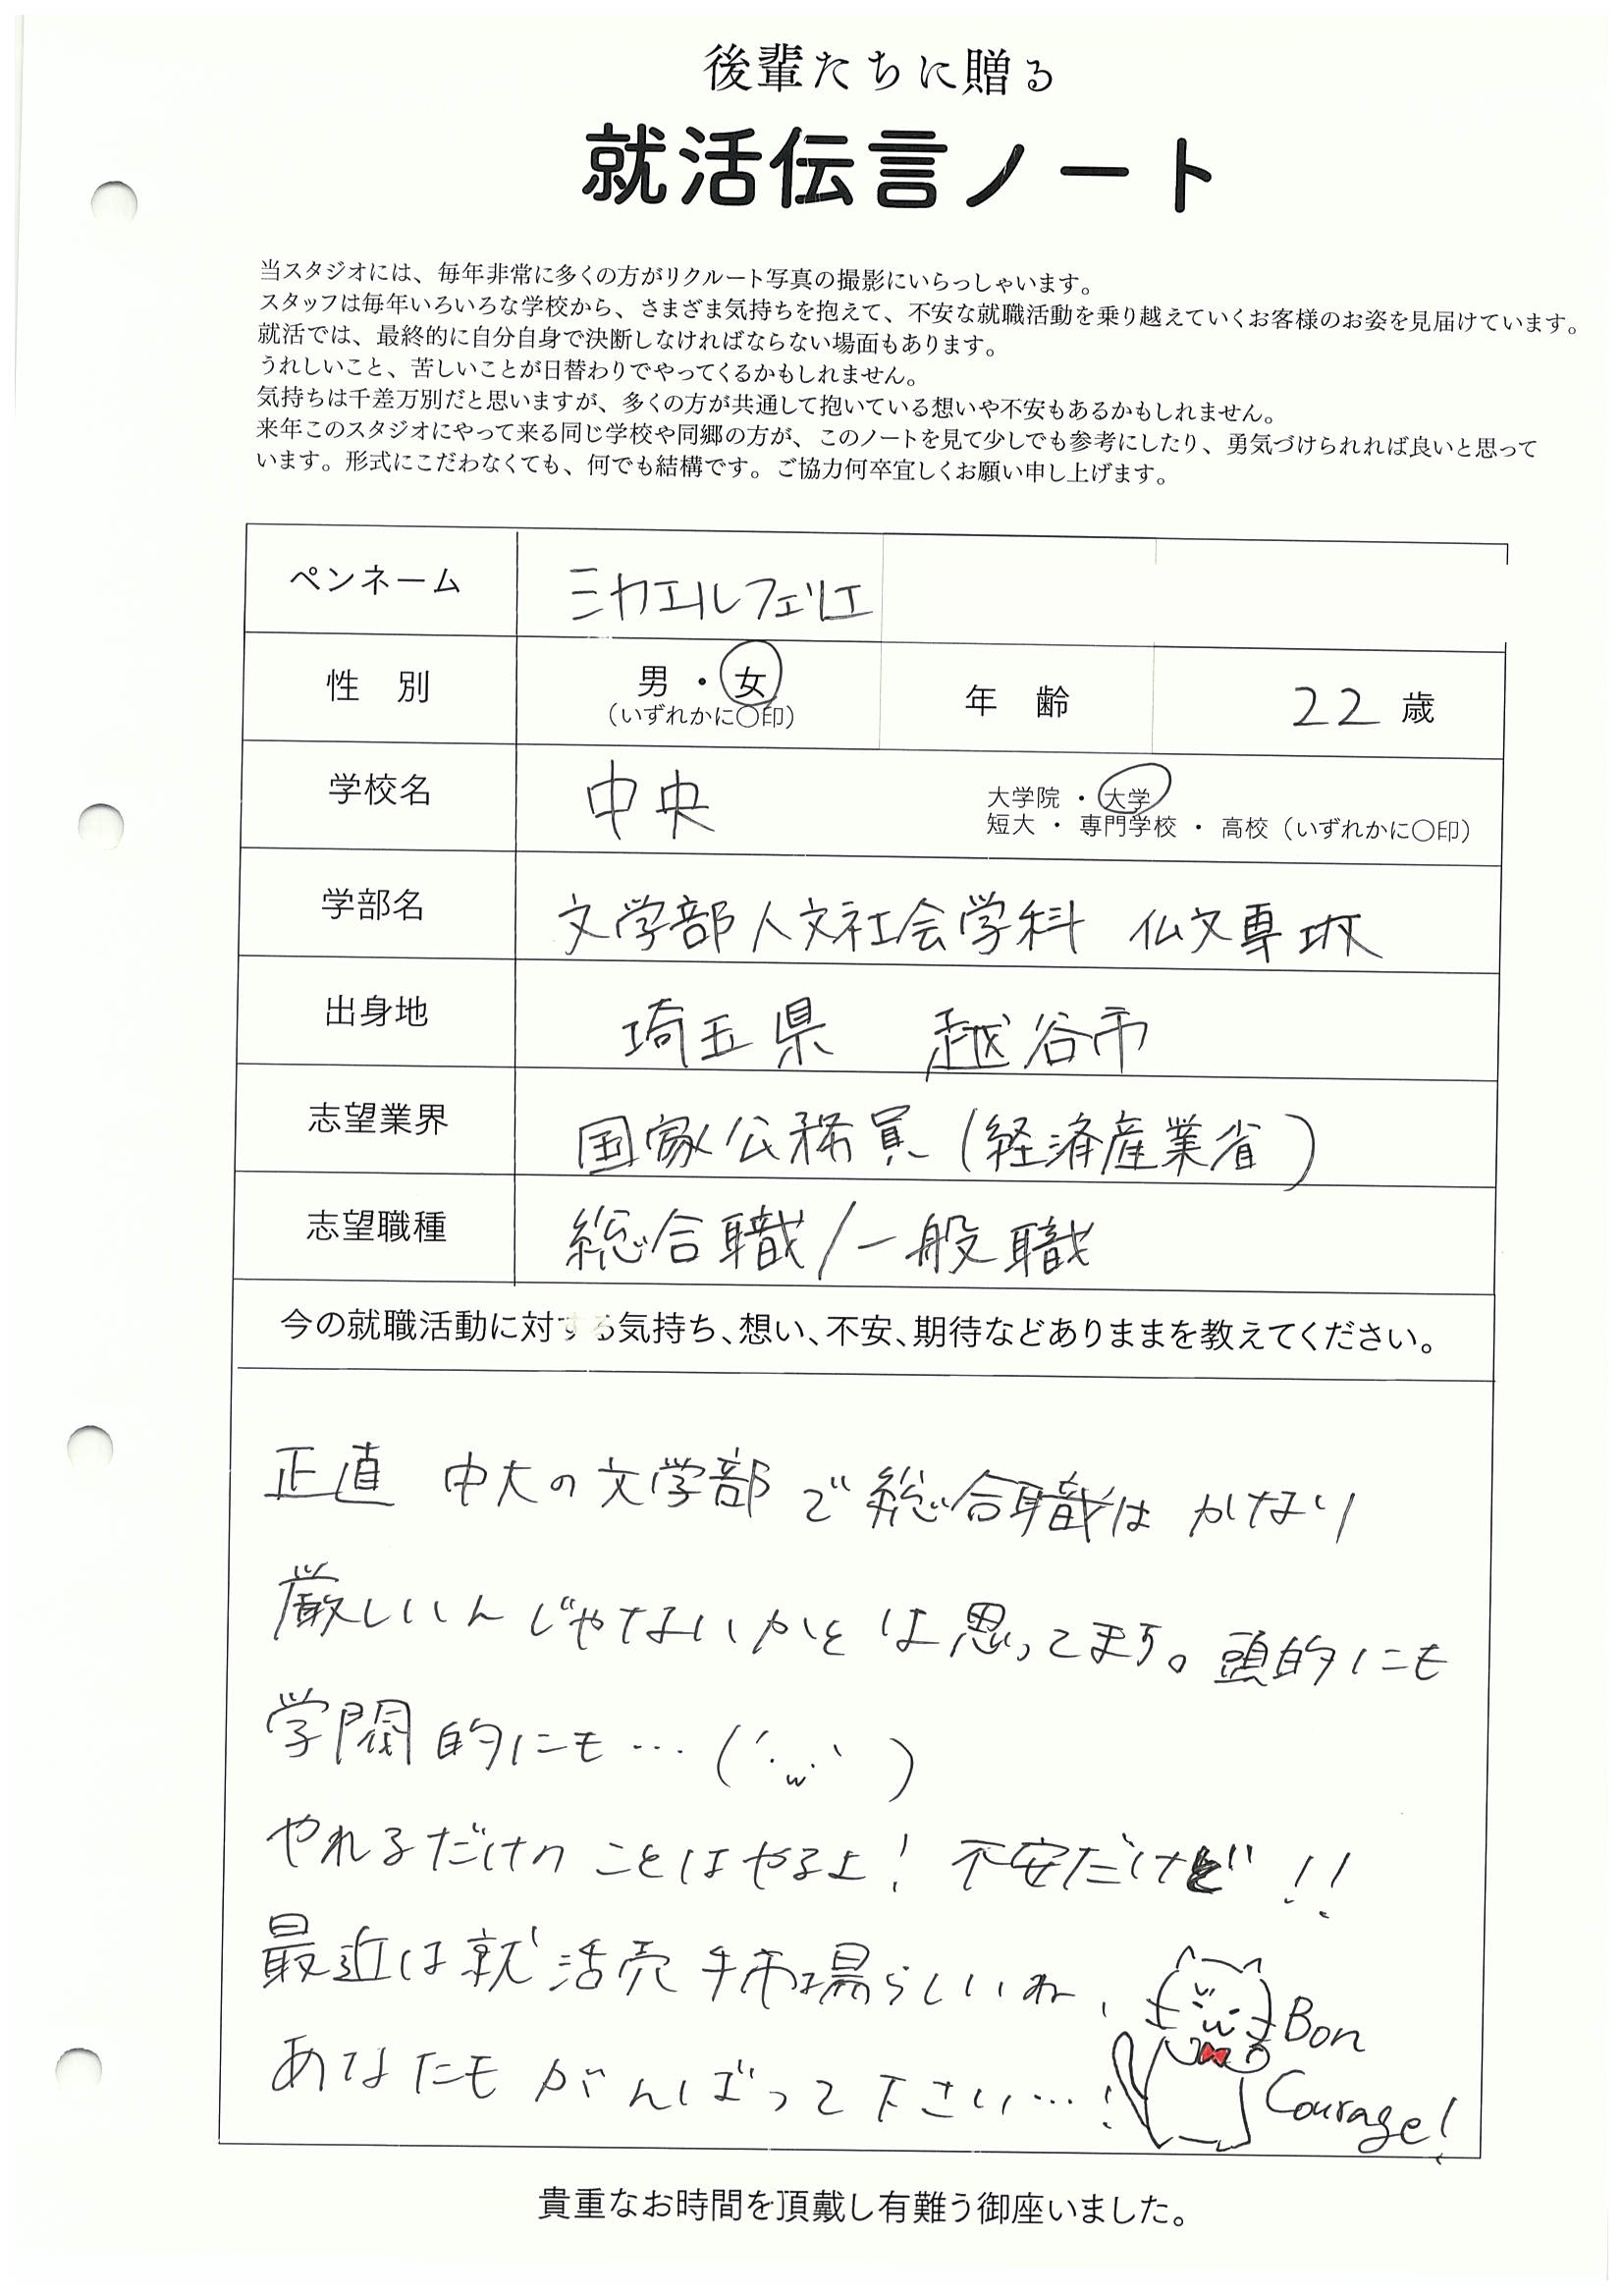 後輩たちに贈る
就活伝言ノート
当スタジオには、毎年非常に多くの方がリクルート写真の撮影にいらっしゃいます。
スタッフは毎年いろいろな学校から、さまざま気持ちを抱えて、不安な就職活動を乗り越えていくお客様のお姿を見届けています。
就活では、最終的に自分自身で決断しなければならない場面もあります。
うれしいこと、苦しいことが日替わりでやってくるかもしれません。
気持ちは千差万別だと思いますが、多くの方が共通して抱いている想いや不安もあるかもしれません。
来年このスタジオにやって来る同じ学校や同郷の方が、このノートを見て少しでも参考にしたり、勇気づけられれば良いと思って
います。形式にこだわなくても、何でも結構です。ご協力何卒宜しくお願い申し上げます。
ペンネーム ミカエルフェリエ
性 別 男 ・ 女 (いずれかに〇印) 年 齢 22 歳
学校名 中央 大学院 ・ 大学
短大 ・ 専門学校 ・ 高校(いずれかに〇印)
学部名 文学部人文社会学科 仏文専攻
出身地 埼玉県 越谷市
志望業界 国家公務員(経済産業省)
志望職種 総合職/一般職
今の就職活動に対する気持ち、想い、不安、期待などありままを教えてください。
正直 中大の文学部で総合職は かなり
厳しいんじゃないかとは思ってます。頭的にも
学閥的にも…(´・ω・`)
やれるだけの ことはやるよ! 不安だけど!!
最近は就活売手市場らしいね、
あなたも がんばって下さい…!
Bon
Courage!
貴重なお時間を頂戴し有難う御座いました。